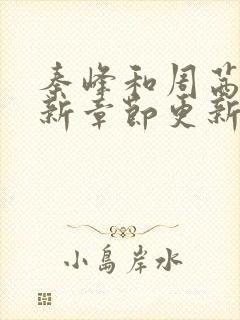 秦峰和周茜
新章节更新
小島岸水